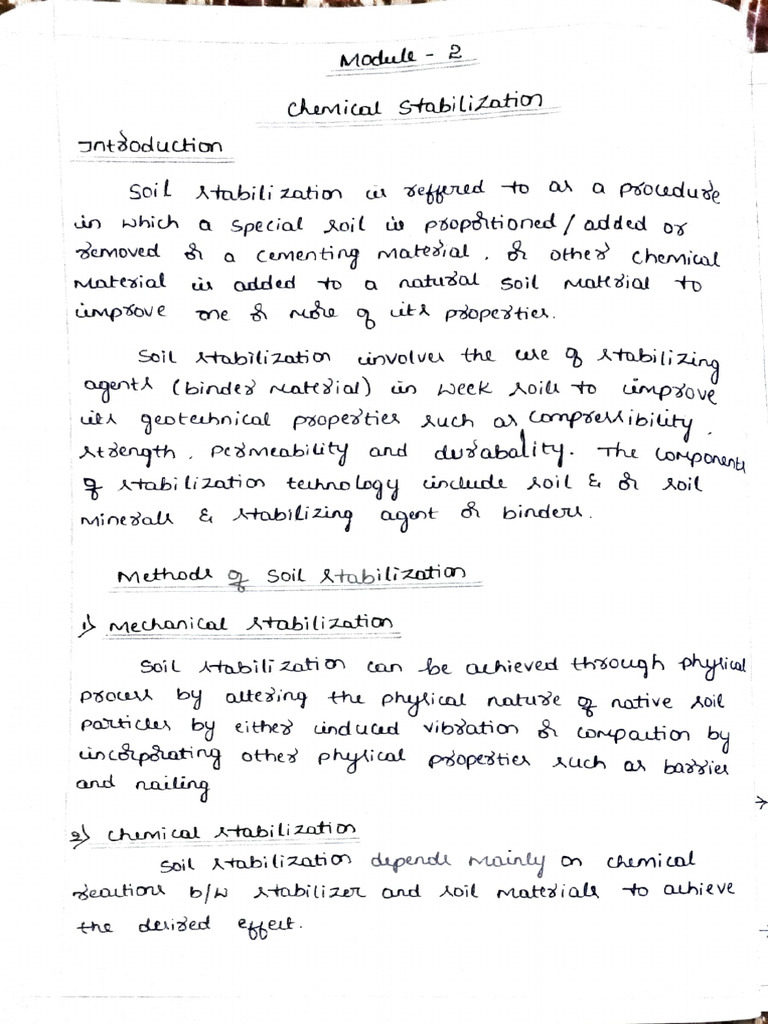 Module - 2
Chemical Stabilization
Introduction
Soil stabilization is reffered to as a procedure
in which a special soil is proportioned / added or
removed or a cementing material, or other chemical
material is added to a natural soil material to
improve one or more of its properties.
Soil stabilization involves the use of stabilizing
agents (binder material) in week soils to improve
its geotechnical properties such as compressibility,
strength, permeability and durabality. The components
of stabilization technology include soil & or soil
minerals & stabilizing agent or binders.
Methods of Soil Stabilization
1) Mechanical stabilization
Soil stabilization can be achieved through physical
process by altering the physical nature of native soil
particles by either induced vibration or compaction by
incorporating other physical properties such as barrier
and nailing
2) Chemical stabilization
Soil stabilization depends mainly on chemical
reactions b/w stabilizer and soil materials to achieve
the desired effect.